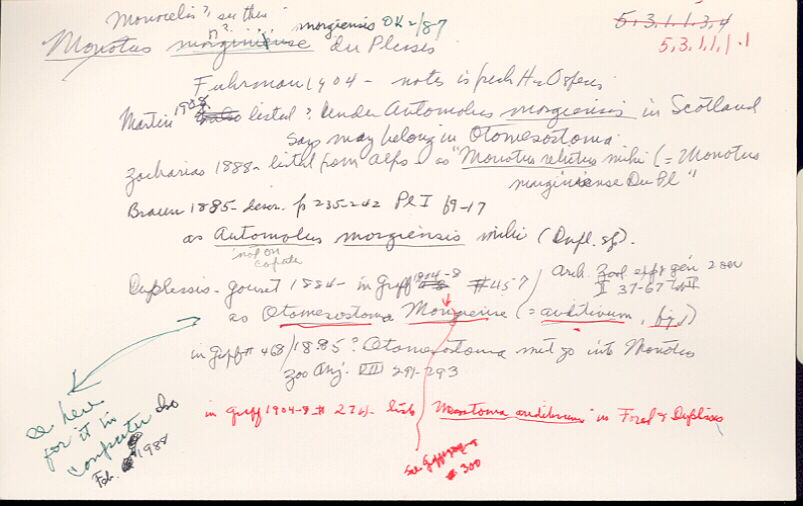 Monocelis?, see this
n? morgiensis OK 2/87
5, 3, 1, 1, 3, 4
Monotus morginiense du Plessis
5, 3, 1, 1, 1 . 1
Fuhrman 1904 - notes is
Martin 1908 listed? Under Automolus morgiensis in Scotland
Says may belong in Otomesostoma.
Zacharias 1888 - listed from Alps - as "Monotus relictus mihi (= Monotus
morginiense Du Pl"
Braun 1885 - descr. p 235-242 Pl I f 9-17
as Automolus morgiensis mihi (Dupl. sp).
not on
computer
Duplessis - gouret 1884 - in Graff 1904-8 #457
Arch. Zool exp & gen 2 ser
II 37-67 Taf II
as Otomesostoma Morgiense (= auditivum, fig 1)
in Graff # 468/1885? Otomesostoma must go into Monotus
Zoo Anz. VIII 291-293
see here
for it in
computer also
Feb. 1988
in Graff 1904-8 # 274 - lists Mesostoma auditivum in Forel & Duplissis
See
# 300